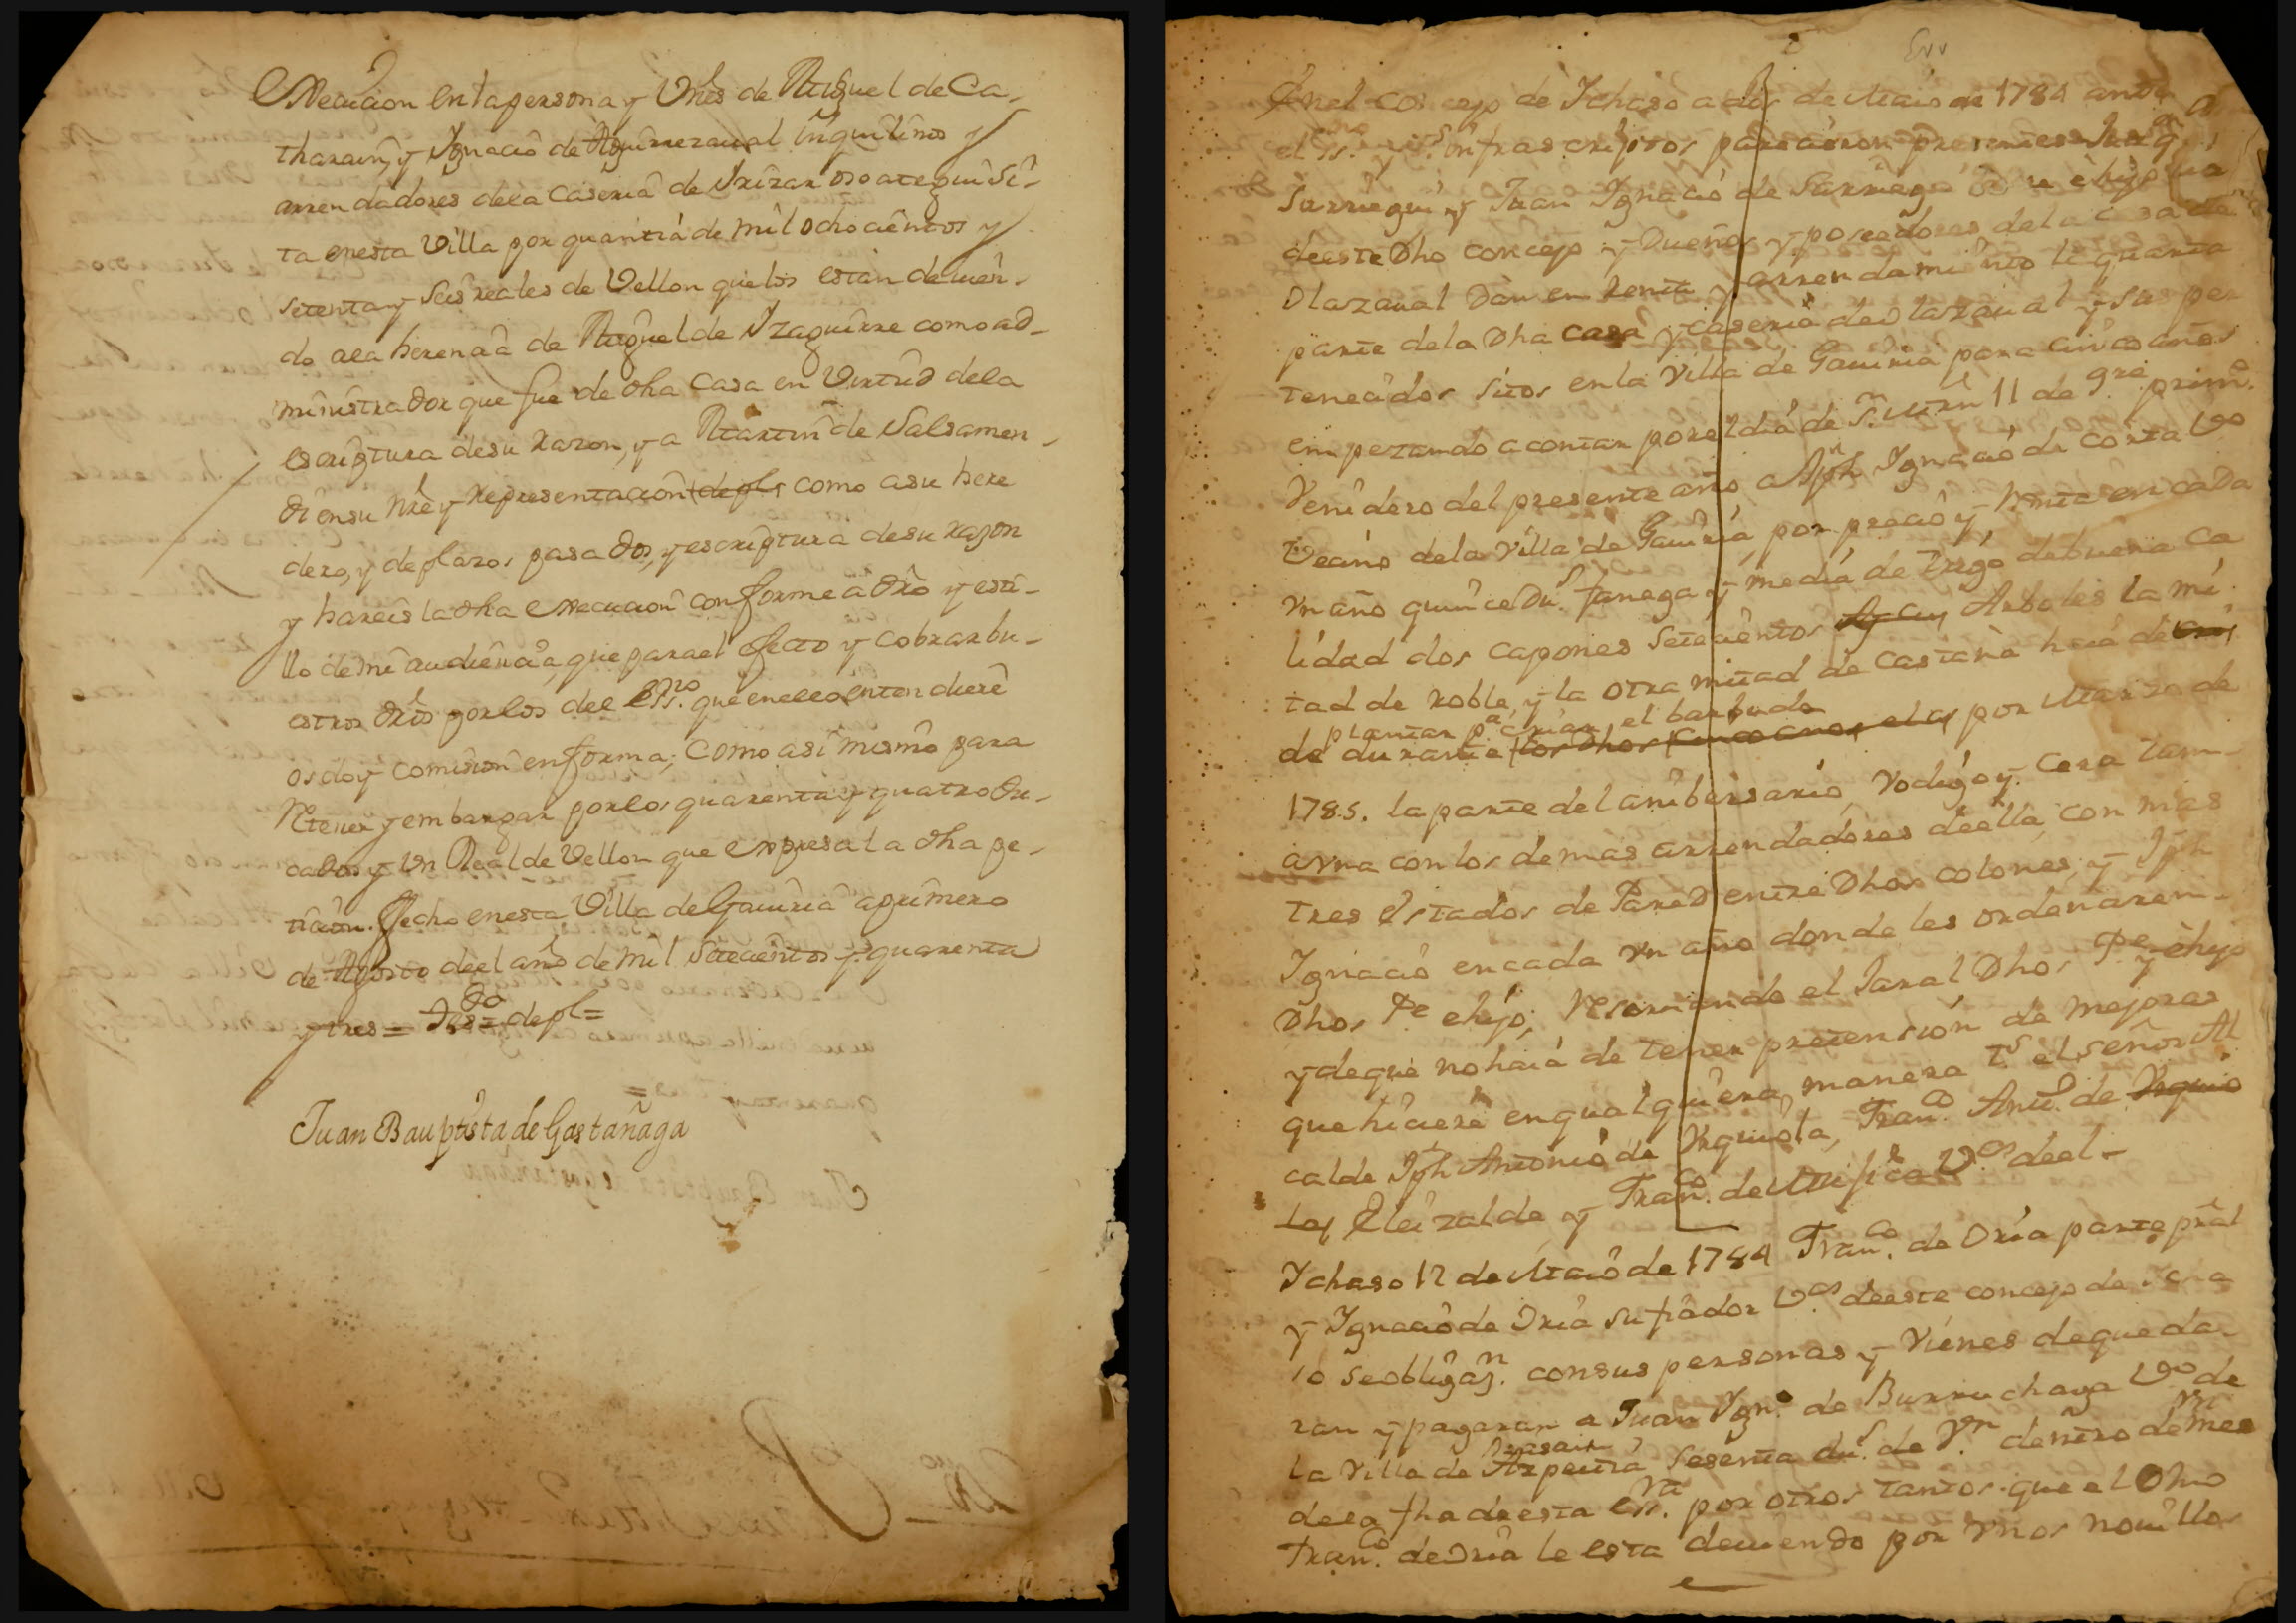 Execucion en la persona y Vnes de Miguel de Ca,
tharain, y Ygnacio de Aguirrezaual inquilinos y
arrendadores dela Caseria de Yrizar osoategui si-
ta enesta Villa por quantia de mil ochocientos y
setenta y seis reales de Vellon quelos estan deuien-
do ala herencia de Miguel de Yzaguirre como ad-
ministrador que fue de dha Casa en Virtud dela
escriptura desu razon, y a Martin de Salsamen-
di ensu nre y representacion de pls como asu here
dero, y de plazos pasados, y escriptura desu razon
y hareis la dha execucion conforme a dro y esti-
llo de mi audiencia, que para el efecto y cobrar bu-
estros dros por los del essno. que enello entendiere
os doy comision enforma; Como asi mismo para
Retener y embargar por los quarenta y quatro du-
cados y Vn Real de Vellon que expresa la dha pe-
ticion. Fecho enesta Villa de Gauiria a primero
de Agosto deel año de mil setecientos y quarenta
y tres = tdo = de pl =
Juan Bauptista de Gastañaga
Enel concejo de Ychaso a dos de Maio de 1784 ante
el ss.no y ts. infrascriptos parecieron presentes
Sarriegui y Juan Ygnacio de Sarriegui
deeste Dho concejo y Dueños y poseedores dela casa de
Olazaual Dan en Renta y arrendamiento la quarta
parte dela Dha casa y caseria de Olazaual y sus per
tenecidos sitos en la Villa de Gauiria para cinco años
empezando a contar por el dia de Sn. Mrn 11 de 9re primo.
Venidero del presente año a Jph Ygnacio de Vo
Vecino dela Villa de Gauiria por precio y Renta en cada
vn año quince Ds. fanega y media de trigo de buena ca
lidad dos capones setecientos Arboles la mi-
tad de roble, y la otra mitad de Castaña haia de
plantar pa. criar, el barbado
de durante los Dhos cinco anos el as por Marzo de
1785. la parte del anibersario, Vodigo y Cera tam-
avna con los demas arrendadores deella, con mas
tres estados de Pared entre Dhos colones, y Jph
Ygnacio encada vn año donde les ordenaren-
Dhos Pe ehijo; Reseruando el Jaral Dhos Pe y ehijo
y de que no haia de tener pretension de mejoras
que hiciere en qualquiera manera ts. el señor Al
calde Jph Antonio de Vrquiola, Franco. Anto. de
Ley Eleizalde y Franco. de Vos deel-
Ychaso 12 de Maio de 1784 Franco. de Oria parte pral
y Ygnacio de Oria su fiador Vos deeste concejo de Ycha
so se obligan. consus personas y Vienes de que da-
ran y pagaran a Juan Ygno. de Burruchaga Vo de
la Villa de Azpeitia sesenta dus. de Vn dentro de mes
dela fha de esta essra. por otros tantos que el Dho
Franco. de Oria le esta deuiendo por vnos nouillos